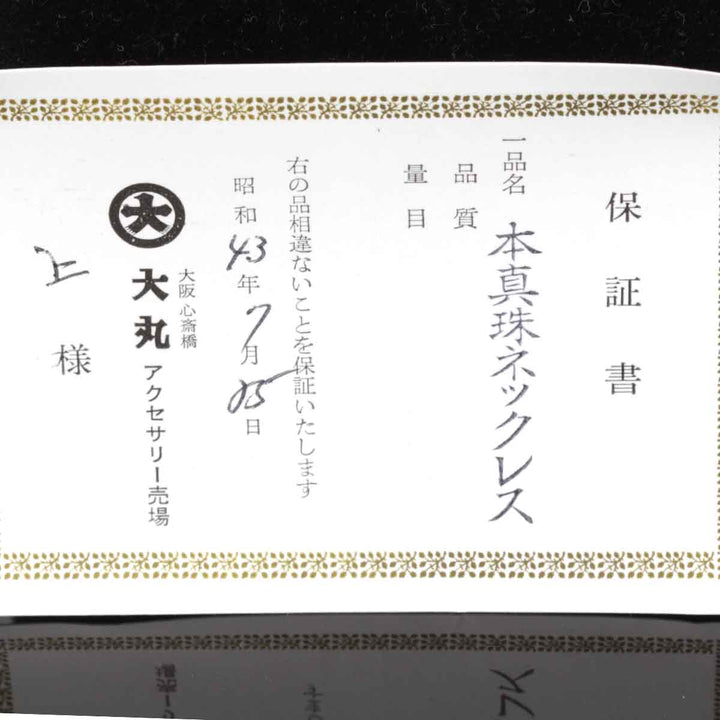 保証書
一品名 本真珠ネックレス
品質
量目
右の品相違ないことを保証いたします
昭和43年7月25日
大阪 心斎橋
大 大丸 アクセサリー売場
上様